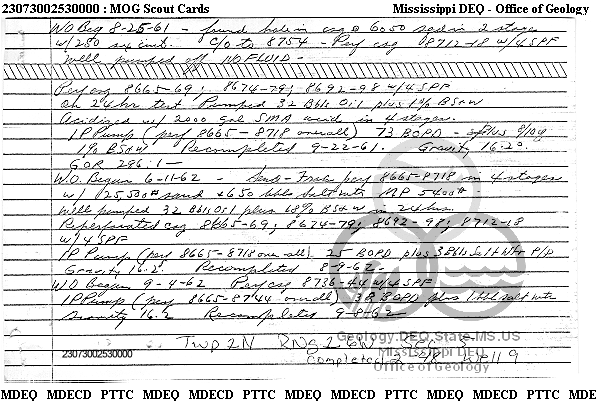 23073002530000 : MOG Scout Cards Mississippi DEQ - Office of Geology
W.O. Beg 8-25-61 - found hole in csg @ 6050 sqzd in 2 stages
w/250 sx cmt. C/O to 8754 - Perf csg 8712-18 w/4 SPF
Well pumped off NO FLUID -
Perf csg 8665-69; 8674-79; 8692-98 w/4 SPF
On 24 hr test Pumped 32 Bbls Oil plus 1% BS+W
Acidized w/ 2000 gal SMA acid in 4 stages.
IP Pump (perf 8665-8718 overall) 73 BOPD - plus
1% BS+W Recompleted 9-22-61. Gravity 16.2°
GOR 296:1 -
W.O. Began 6-11-62 - Sand-Frac perf 8665-8718 in 4 stages
w/ 25,500# sand + 650 bbls salt wtr MP 5400# -
Well pumped 32 Bbls Oil plus 68% BS+W in 24 hrs.
Reperforated csg 8665-69; 8674-79; 8692-98; 8712-18
w/4 SPF
IP Pump (perf 8665-8718 over all) 25 BOPD plus 3 Bbls Salt Wtr P/D
Gravity 16.2. Recompleted 8-9-62 -
W.O. Began 9-4-62 Perf csg 8736-44 w/4 SPF
IP Pump (perf 8665-8744 overall) 38 BOPD plus 1 bbl salt wtr
Gravity 16.2 Recompleted 9-8-62
Geology.DEQ.State.MS.US
Twp 2N Rng 26N Sec
Mississippi DEQ
23073002530000 Completed 2 - 48 WF 119
Office of Geology
MDEQ MDECD PTTC MDEQ MDECD PTTC MDEQ MDECD PTTC MDEQ MDECD PTTC MDE